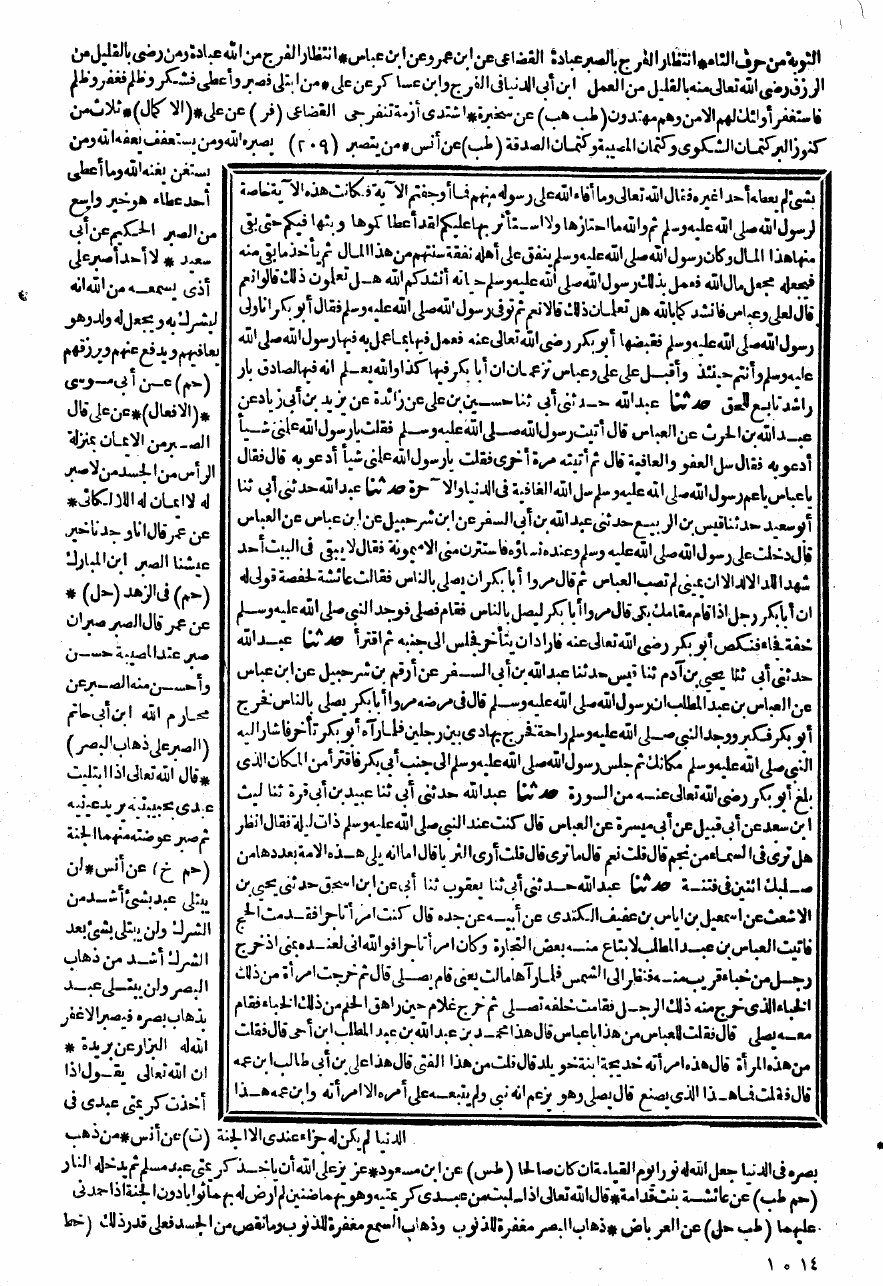 التوبة من حرف التاء * انتظار الفرج بالصبر عبادة القضاعى عن ابن عمر وعن ابن عباس * انتظار الفرج من الله عبادة ومن رضى بالقليل من
الرزق رضى الله تعالى منه بالقليل من العمل ابن أبى الدنيا فى الفرج وابن عساكر عن على * من ابتلى فصبر وأعطى فشكر وظلم فغفر وظلم
فاستغفر أولئك لهم الامن وهم مهتدون (طب هب) عن سخبرة * اشتدى أزمة تنفرجى القضاعى (فر) عن على * (الاكمال) * ثلاث من
كنوز البر كتمان الشكوى وكتمان المصيبة وكتمان الصدقة (طب) عن أنس * من يتصبر (٢٠٩) يصبره الله ومن يستعفف يعفه الله ومن
يستغن يغنه الله وما أعطى
أحد عطاء هو خير واسع
من الصبر الحكيم عن أبى
سعيد * لا أحد أصبر على
أذى يسمعه من الله انه
ليشرك به ويجعل له ولد وهو
يعافيهم ويدفع عنهم ويرزقهم
(حم) عن أبى موسى
* (الافعال) * عن على قال
الصبر من الايمان بمنزلة
الرأس من الجسد من لا صبر
له لا ايمان له اللالكائى *
عن عمر قال انا وجدنا خير
عيشنا الصبر ابن المبارك
(حم) فى الزهد (حل) *
عن عمر قال الصبر صبران
صبر عند المصيبة حسن
وأحسن منه الصبر عن
محارم الله ابن أبى حاتم
(الصبر على ذهاب البصر)
* قال الله تعالى اذا ابتليت
عبدى بحبيبتيه يريد عينيه
ثم صبر عوضته منهما الجنة
(حم خ) عن أنس * لن
يبتلى عبد بشئ أشد من
الشرك ولن يبتلى بشئ بعد
الشرك أشد من ذهاب
البصر ولن يبتلى عبد
بذهاب بصره فيصبر الا غفر
الله له البزار عن بريدة *
ان الله تعالى يقول اذا
أخذت كريمتى عبدى فى
الدنيا لم يكن له جزاء عندى الا الجنة (ت) عن أنس * من ذهب
بصره فى الدنيا جعل الله له نورا يوم القيامة ان كان صالحا (طس) عن ابن مسعود * عزيز على الله أن يأخذ كريمتى عبد مسلم ثم يدخله النار
(حم طب) عن عائشة بنت قدامة * قال الله تعالى اذا سلبت من عبدى كريمتيه وهو بهما ضنين لم ارض له بهما ثوابا دون الجنة اذا حمدنى
عليهما (طب حل) عن العرباض * ذهاب البصر مغفرة للذنوب وذهاب السمع مغفرة للذنوب وما نقص من الجسد فعلى قدر ذلك (خط
بشئ لم يعطه أحدا غيره فقال الله تعالى وما أفاء الله على رسوله منهم فما أوجفتم الآية فكانت هذه الآية خاصة
لرسول الله صلى الله عليه وسلم ثم والله ما احتازها ولا استأثر بها عليكم لقد أعطاكموها وبثها فيكم حتى بقى
منها هذا المال وكان رسول الله صلى الله عليه وسلم ينفق على أهله نفقة سنتهم من هذا المال ثم يأخذ ما بقى منه
فيجعله مجعل مال الله فعمل بذلك رسول الله صلى الله عليه وسلم حياته أنشدكم الله هل تعلمون ذلك قالوا نعم
قال لعلى وعباس فانشدكما بالله هل تعلمان ذلك قالا نعم ثم توفى رسول الله صلى الله عليه وسلم فقال أبو بكر انا ولى
رسول الله صلى الله عليه وسلم فقبضها أبو بكر رضى الله تعالى عنه فعمل فيها بما عمل به فيها رسول الله صلى الله
عليه وسلم وأنتم حينئذ وأقبل على على وعباس تزعمان ان أبا بكر فيها كذا والله يعلم انه فيها لصادق بار
راشد تابع للحق حدثنا عبد الله حدثنى أبى ثنا حسين بن على عن زائدة عن يزيد بن أبى زياد عن
عبد الله بن الحرث عن العباس قال أتيت رسول الله صلى الله عليه وسلم فقلت يا رسول الله علمنى شيأ
أدعو به فقال سل العفو والعافية قال ثم أتيته مرة أخرى فقلت يا رسول الله علمنى شيأ أدعو به قال فقال
يا عباس يا عم رسول الله صلى الله عليه وسلم سل الله العافية فى الدنيا والآخرة حدثنا عبد الله حدثنى أبى ثنا
أبو سعيد حدثنا قيس بن الربيع حدثنى عبد الله بن أبى السفر عن ابن شرحبيل عن ابن عباس عن العباس
قال دخلت على رسول الله صلى الله عليه وسلم وعنده نساؤه فاستترن منى الا ميمونة فقال لا يبقى فى البيت أحد
شهد اللد الا لد الا ان يمينى لم تصب العباس ثم قال مروا أبا بكر ان يصلى بالناس فقالت عائشة لحفصة قولى له
ان أبا بكر رجل اذا قام مقامك بكى قال مروا أبا بكر ليصل بالناس فقام فصلى فوجد النبى صلى الله عليه وسلم
خفة فجاء فنكص أبو بكر رضى الله تعالى عنه فاراد ان يتأخر فجلس الى جنبه ثم اقترأ حدثنا عبد الله
حدثنى أبى ثنا يحيى بن آدم ثنا قيس حدثنا عبد الله بن أبى السفر عن أرقم بن شرحبيل عن ابن عباس
عن العباس بن عبد المطلب ان رسول الله صلى الله عليه وسلم قال فى مرضه مروا أبا بكر يصلى بالناس فخرج
أبو بكر فكبر ووجد النبى صلى الله عليه وسلم راحة فخرج يهادى بين رجلين فلما رآه أبو بكر تأخر فاشار اليه
النبى صلى الله عليه وسلم مكانك ثم جلس رسول الله صلى الله عليه وسلم الى جنب أبى بكر فاقترأ من المكان الذى
بلغ أبو بكر رضى الله تعالى عنه من السورة حدثنا عبد الله حدثنى أبى ثنا عبيد بن أبى قرة ثنا ليث
ابن سعد عن أبى قبيل عن أبى ميسرة عن العباس قال كنت عند النبى صلى الله عليه وسلم ذات ليلة فقال انظر
هل ترى فى السماء من نجم قال قلت نعم قال ما ترى قال قلت أرى الثريا قال اما انه يلى هذه الامة بعددها من
صلبك اثنين فى فتنة حدثنا عبد الله حدثنى أبى ثنا يعقوب ثنا أبى عن ابن اسحق حدثنى يحيى بن
الاشعث عن اسمعيل بن اياس بن عفيف الكندى عن أبيه عن جده قال كنت امرأ تاجرا فقدمت الحج
فاتيت العباس بن عبد المطلب لابتاع منه بعض التجارة وكان امرأ تاجرا فوالله انى لعنده بمنى اذ خرج
رجل من خباء قريب منه فنظر الى الشمس فلما رآها مالت يعنى قام يصلى قال ثم خرجت امرأة من ذلك
الخباء الذى خرج منه ذلك الرجل فقامت خلفه تصلى ثم خرج غلام حين راهق الحلم من ذلك الخباء فقام
معه يصلى قال فقلت للعباس من هذا يا عباس قال هذا محمد بن عبد الله بن عبد المطلب ابن أخى قال فقلت
من هذه المرأة قال هذه امرأته خديجة ابنة خويلد قال قلت من هذا الفتى قال هذا على بن أبى طالب ابن عمه
قال فقلت فما هذا الذى يصنع قال يصلى وهو يزعم انه نبى ولم يتبعه على أمره الا امرأته وابن عمه هذا
١٠١٤